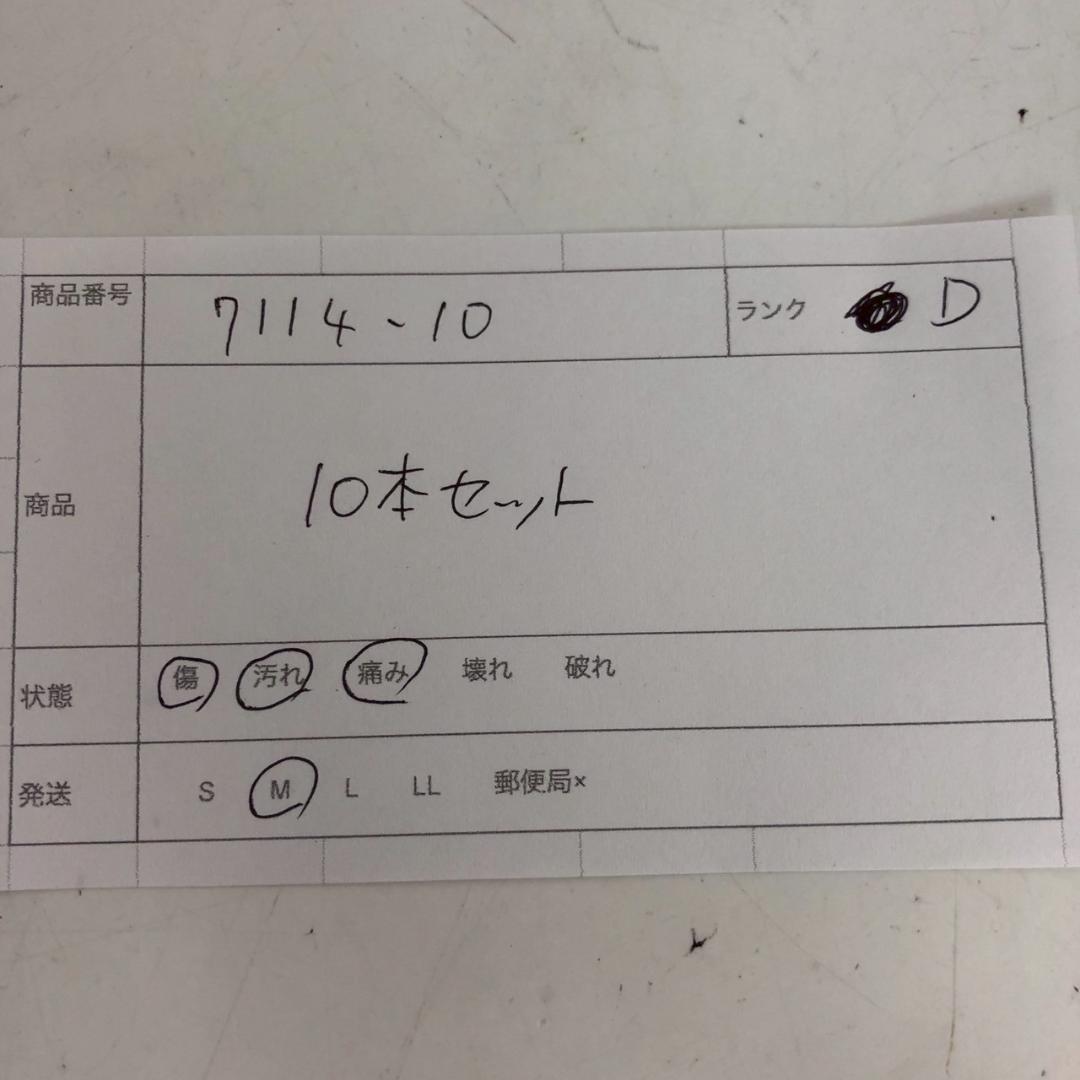 商品番号 7114-10 ランク D
商品 10本セット
状態 傷 汚れ 痛み 壊れ 破れ
発送 S M L LL 郵便局×